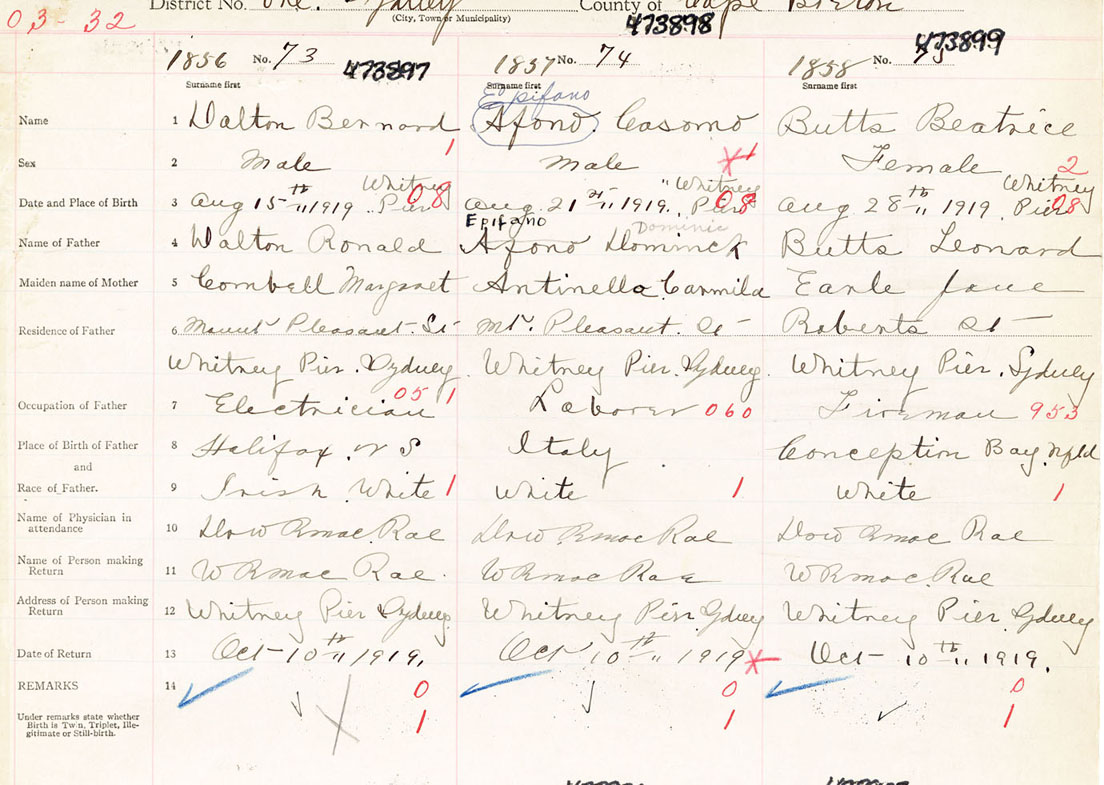 District No. One. Sydney County of Cape Breton
(City, Town or Municipality)
03-32
473898
473899
1856 No. 73 473897 1857 No. 74 1858 No. 75
Surname first Surname first Surname first
Epifano
Name 1 Walton Bernard Afono. Casomo Butts Beatrice
1
Sex 2 Male male Female 2
Whitney "Whitney Whitney
Date and Place of Birth 3 Aug 15th " 1919 .. Pier 08 Aug. 21st " 1919. " Pier 08 Aug 28th " 1919, Pier 08
Epifano Dominic
Name of Father 4 Walton Ronald Afono Dominick Butts Leonard
Maiden name of Mother 5 Combell Margaret Antinella Carmila Earle Jane
Residence of Father 6 Mount Pleasant. St Mt. Pleasant. St Roberts St
Whitney Pier. Sydney Whitney Pier. Sydney. Whitney Pier. Sydney
051
Occupation of Father 7 Electrician Laborer 060 Fireman 953
Place of Birth of Father 8 Halifax. N S Italy Conception Bay. Nfld
and
Race of Father. 9 Irish White 1 White 1 White 1
Name of Physician in
attendance 10 W R mac. Rae W R mac Rae W R mac Rae
Name of Person making
Return 11 W R mac Rae. W R mac Rae W R mac. Rae
Address of Person making
Return 12 Whitney Pier Sydney. Whitney Pier. Sydney Whitney Pier. Sydney
Date of Return 13 Oct 10th " 1919. Oct 10th " 1919 Oct 10th " 1919.
REMARKS 14 0 0 0
Under remarks state whether
Birth is Twin, Triplet, Ille-
gitimate or Still-birth. 1 1 1